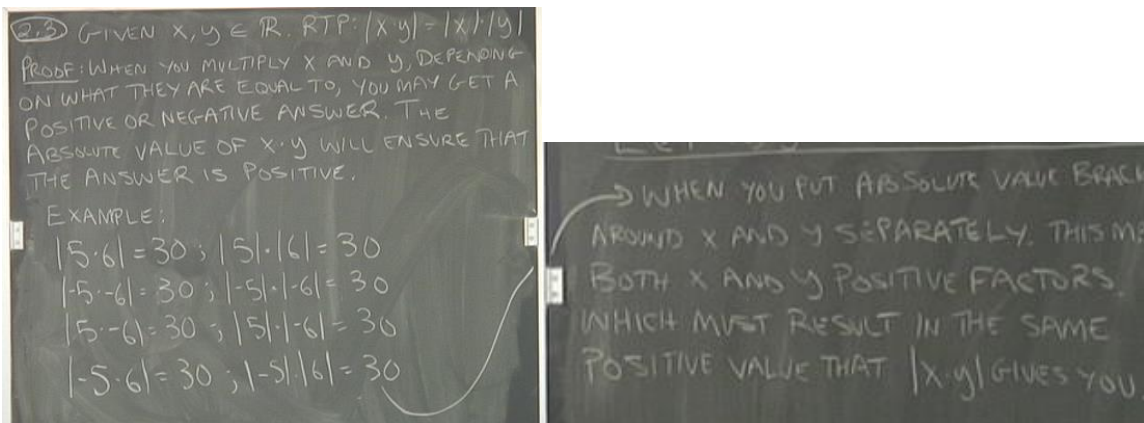 2.3 GIVEN X, y ∈ ℝ. RTP: |x·y| = |x|·|y|
PROOF: WHEN YOU MULTIPLY X AND Y, DEPENDING
ON WHAT THEY ARE EQUAL TO, YOU MAY GET A
POSITIVE OR NEGATIVE ANSWER. THE
ABSOLUTE VALUE OF X·Y WILL ENSURE THAT
THE ANSWER IS POSITIVE.
EXAMPLE:
|5·6| = 30 ; |5|·|6| = 30
|-5·-6| = 30 ; |-5|·|-6| = 30
|5·-6| = 30 ; |5|·|-6| = 30
|-5·6| = 30 ; |-5|·|6| = 30
→ WHEN YOU PUT ABSOLUTE VALUE BRACK
AROUND X AND Y SEPARATELY. THIS M
BOTH X AND Y POSITIVE FACTORS.
WHICH MUST RESULT IN THE SAME
POSITIVE VALUE THAT |x·y| GIVES YOU.